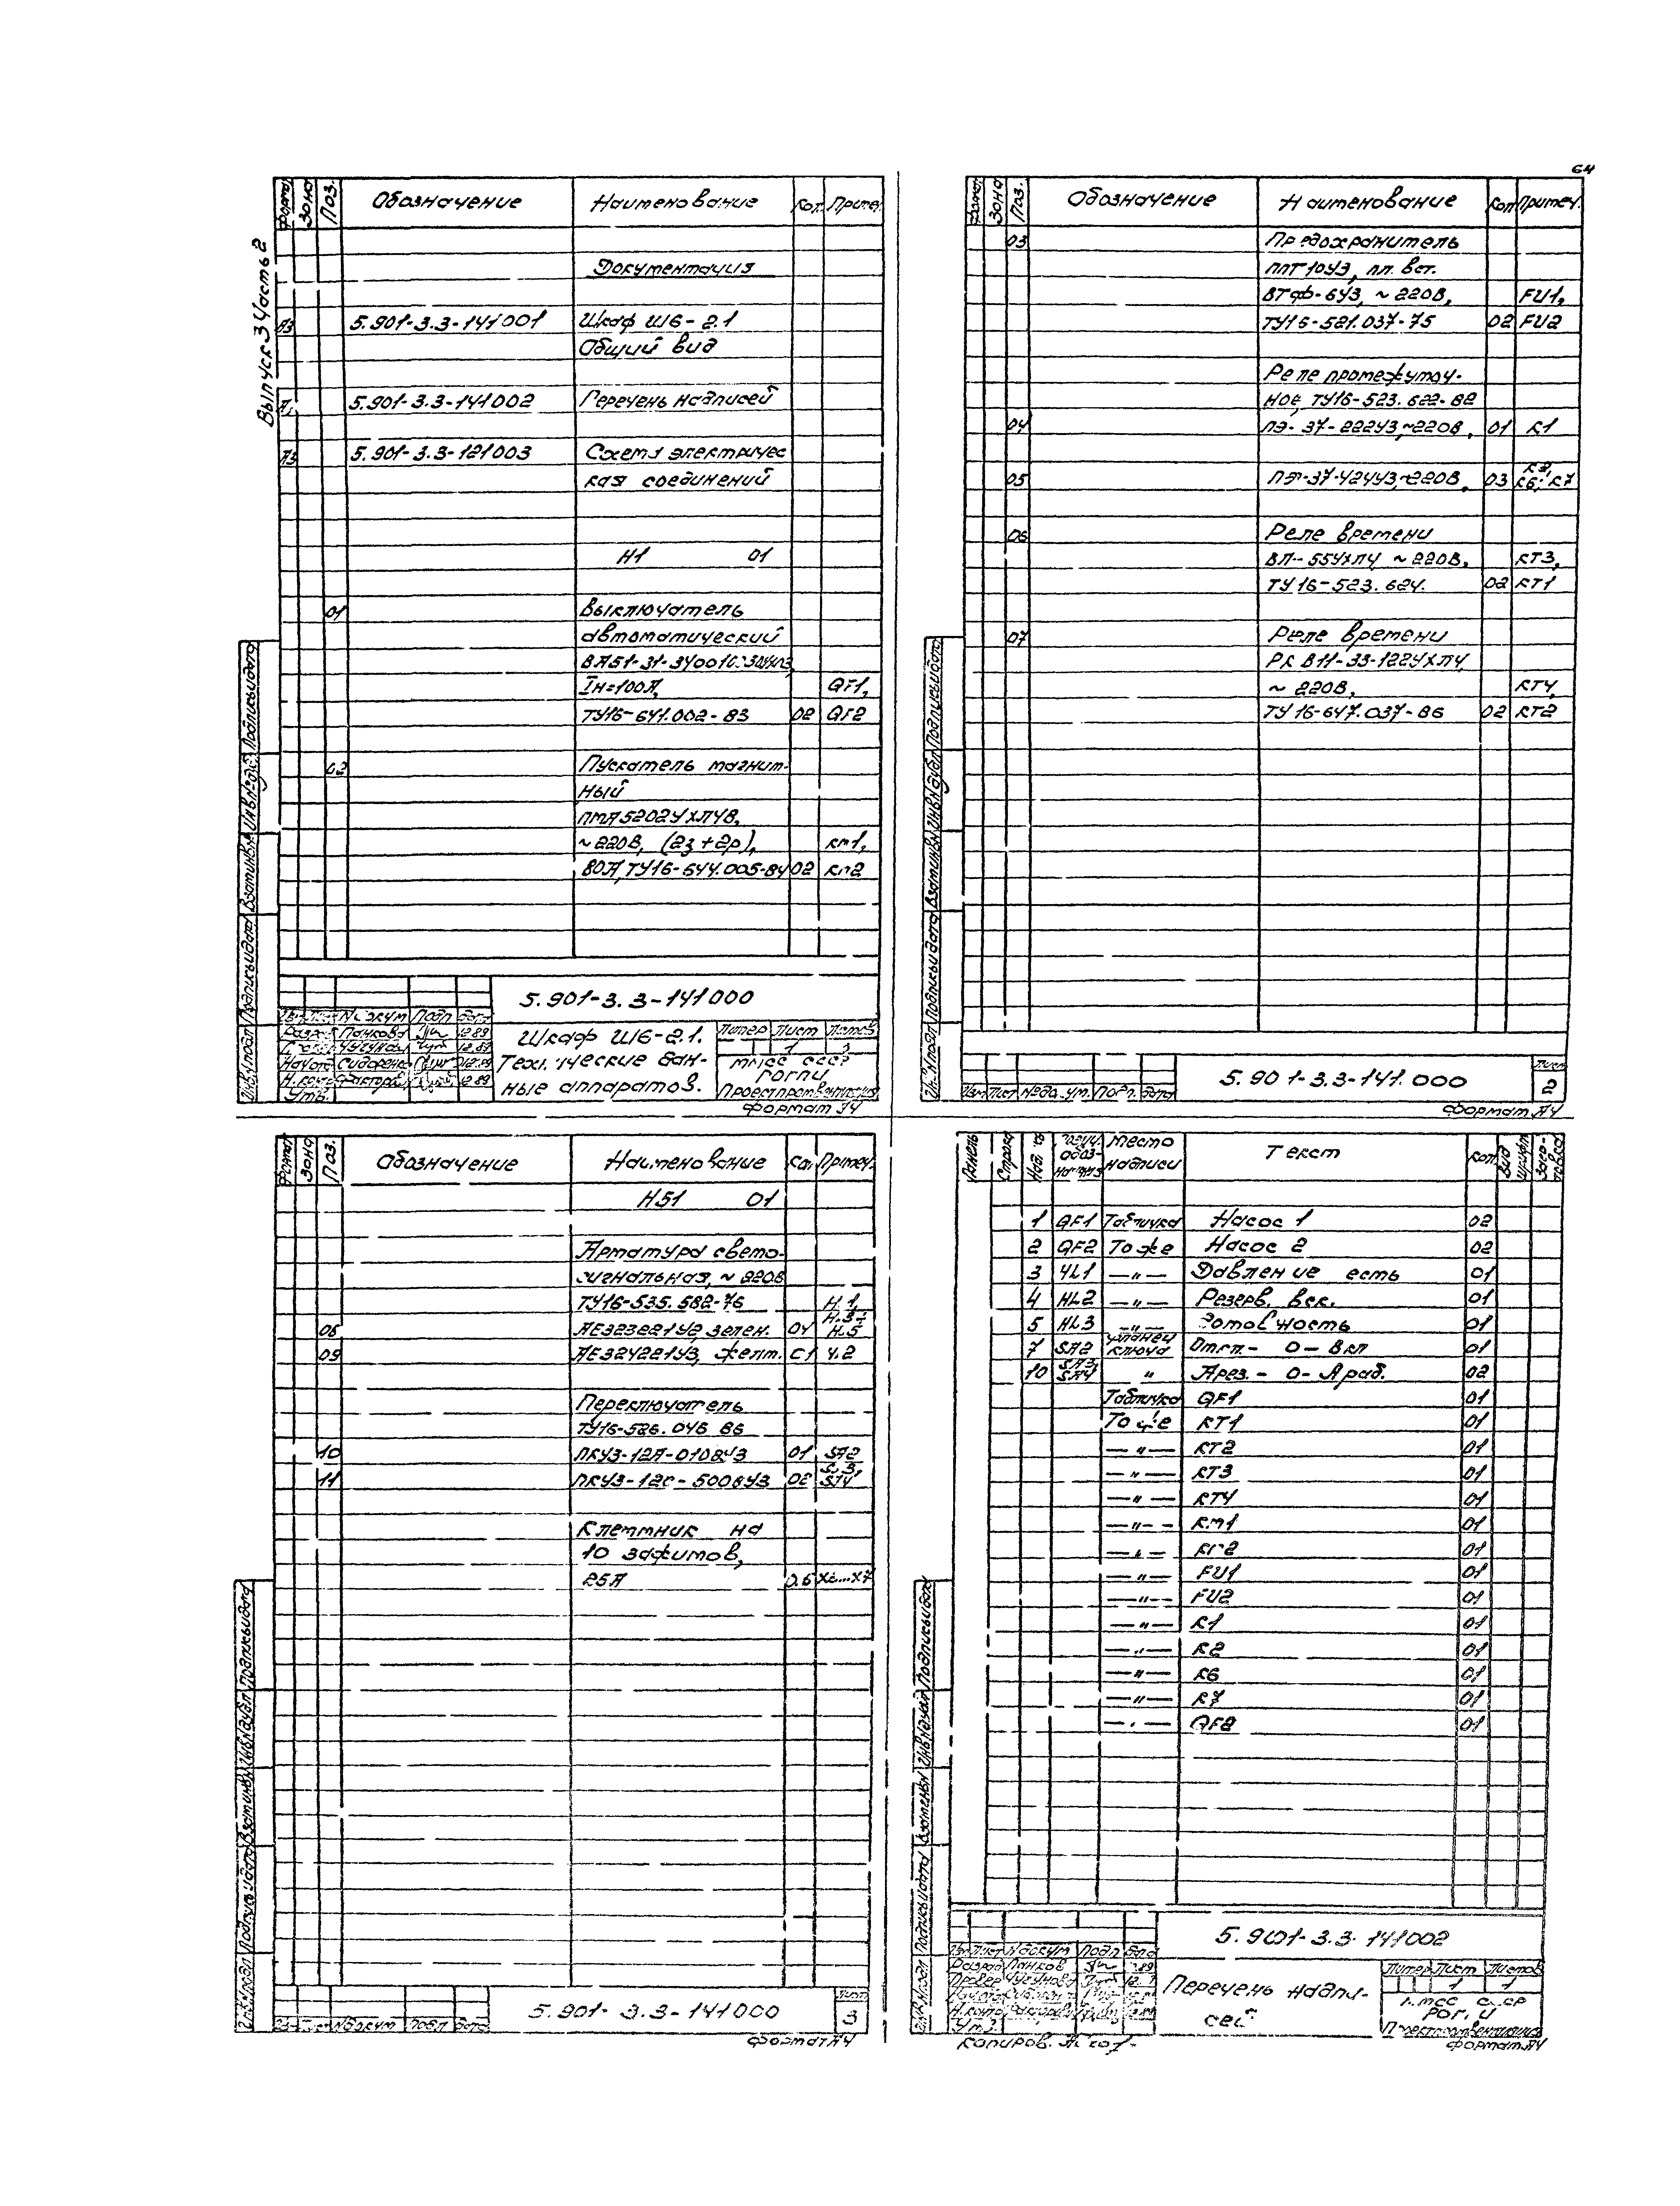 64
Выпуск 3 Часть 2
Формат Зона Поз. Обозначение Наименование Кол. Примеч.
Документация
А3 5.901-3.3-141001 Шкаф Ш6-2.1
Общий вид
5.901-3.3-141002 Перечень надписей
А3 5.901-3.3-121003 Схема электричес
кая соединений
Н1 01
01 Выключатель
автоматический
ВА51-31-340010
Iн=100А,
QF1,
ТУ16-641.002-83 02 QF2
02 Пускатель магнит-
ный
ПМА5202УХЛ4В,
~220В, (2з+2р), КМ1,
80А, ТУ16-644.005-84 02 КМ2
5.901-3.3-141000
Изм. Лист № докум Подп Дата
Разраб Панкова 12.89
Чугунова 12.89
Нач отд Сидоренко 12.89
Н. контр Факторов 12.89
Утв.
Шкаф Ш6-2.1.
Технические дан-
ные аппаратов.
Литер Лист Листов
1 3
ММСС СССР
ГОГПИ
Проектпромвентиляция
формат А4
Инв.№подл Подпись и дата Взам.инв.№ Инв.№дубл. Подпись и дата
Формат Зона Поз. Обозначение Наименование Кол Примеч.
03 Предохранитель
ППТ10У3, пл. вст.
ВТФ-6У3, ~220В, FU1,
ТУ16-521.037-75 02 FU2
Реле промежуточ-
ное, ТУ16-523.622-82
04 ПЭ-37-22У3,~220В, 01 К1
05 ПЭ-37-42У3,~220В, 03 К2, К6, К7
06 Реле времени
ВЛ-55УХЛ4, ~220В, КТ3,
ТУ16-523.624. 02 КТ1
07 Реле времени
РКВ11-33-122УХЛ4,
~220В, КТ4,
ТУ16-647.037-86 02 КТ2
5.901-3.3-141.000
Изм Лист №докум. Подп. Дата
Лист
2
формат А4
Инв.№подл Подпись и дата Взам.инв.№ Инв.№дубл Подпись и дата
Формат Зона Поз. Обозначение Наименование Кол. Примеч.
Н51 01
Арматура свето-
сигнальная, ~220В
ТУ16-535.582-76 Н.1,
08 АЕ323221У2, зелен. 04 Н.3÷Н.5
09 АЕ324221У3, желт. 01 Н.2
Переключатель
ТУ16-526.046 86
10 ПКУ3-12А-0108У3 01 SA2
11 ПКУ3-12С-5008У3 02 SA3, SA4
Клеммник на
10 зажимов,
25А 0.6 Х2...Х7
5.901-3.3-141000
Изм Лист №докум Подп Дата
Лист
3
формат А4
Инв.№подл Подпись и дата Взам.инв.№ Инв.№дубл Подпись и дата
Панель Строка Надпись Позиц. обоз- начения Место надписи Текст Кол. Вид шрифта Заготовка
1 QF1 Табличка Насос 1 02
2 QF2 То же Насос 2 02
3 HL1 —"— Давление есть 01
4 HL2 —"— Резерв. вкл. 01
5 HL3 —"— Готовность 01
7 SA2 Фланец ключа Откл.- 0 - Вкл 01
10 SA3, SA4 " Арез.- 0 - А раб. 02
Табличка QF1 01
То же КТ1 01
—"— КТ2 01
—"— КТ3 01
—"— КТ4 01
—"— КМ1 01
—"— КМ2 01
—"— FU1 01
—"— FU2 01
—"— К1 01
—"— К2 01
—"— К6 01
—"— К7 01
—"— QF2 01
5.901-3.3-141002
Изм Лист №докум Подп Дата
Разраб Панков
Провер Чугунова
Н.контр
Утв.
Перечень надпи-
сей
Литер Лист Листов
1 1
ММСС СССР
ГОГПИ
Проектпромвентиляция
формат А4
Копиров.
Инв.№подл Подпись и дата Взам.инв.№ Инв.№дубл Подпись и дата